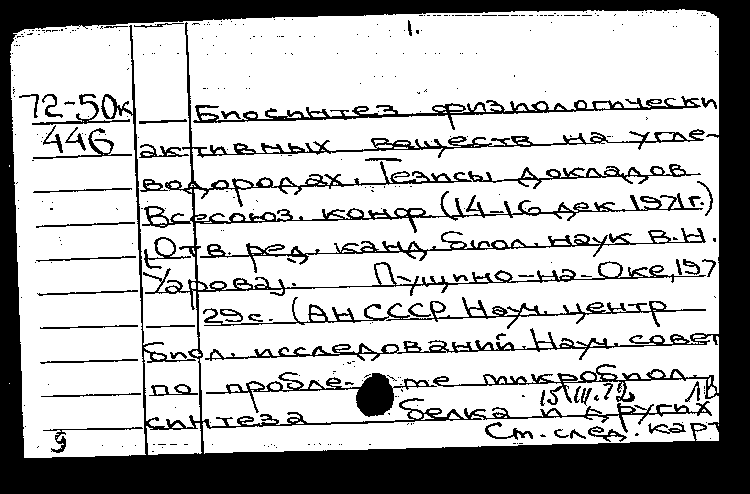 1.
72-50к Биосинтез физиологически
446 активных веществ на угле-
водородах. Тезисы докладов
Всесоюз. конф. (14-16 дек. 1971г.)
[Отв. ред. канд. биол. наук В.Н.
Уарова]. Пущино-на-Оке, 197
29с. (АН СССР. Науч. центр
биол. исследований. Науч. совет
по пробле-ме микробиол.
15/III.72 1В
синтеза белка и других
См. след. карт
9